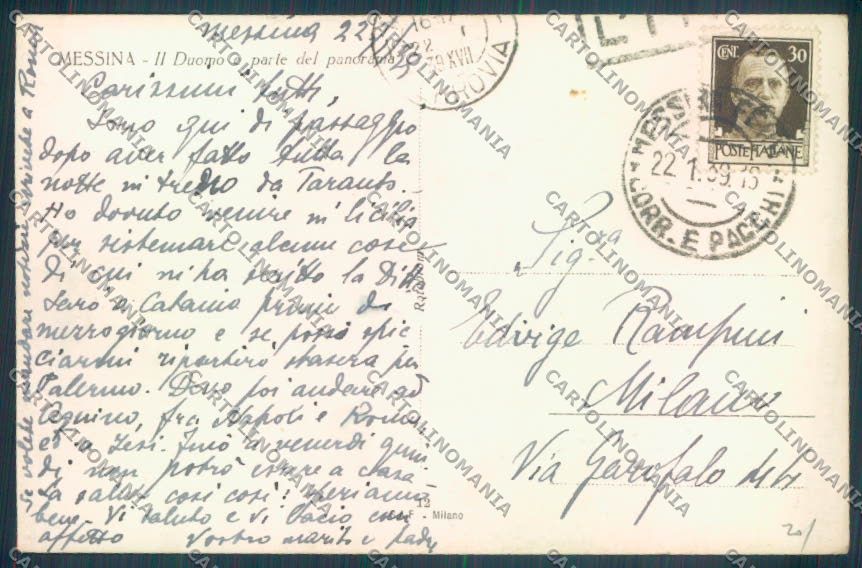 Messina 22/1/39
MESSINA - Il Duomo e parte del panorama
Carissimi tutti,
Sono qui di passaggio
dopo aver fatto tutta la
notte in treno da Taranto.
Ho dovuto venire in Sicilia
per sistemare alcune cose
di cui mi ha scritto la Ditta
Sarò a Catania prima di
mezzogiorno e se posso spic
ciarmi ripartirò stasera per
Palermo. Devo poi andare ad
Aquino, fra Napoli e Roma
ed a Jesi. Fino a venerdì quin
di non potrò essere a casa.
La salute così così: speriamo
bene. Vi saluto e vi bacio con
affetto Vostro marito e padre
Se volete mandare notizie scrivete a Roma
FERROVIA
CENT. 30
POSTE ITALIANE
MESSINA
22.1.39.16
CORR. E PACCHI
Sig.ra
Edvige Rampini
Milano
Via Garofalo
12
- Milano
20/
CARTOLINOMANIA